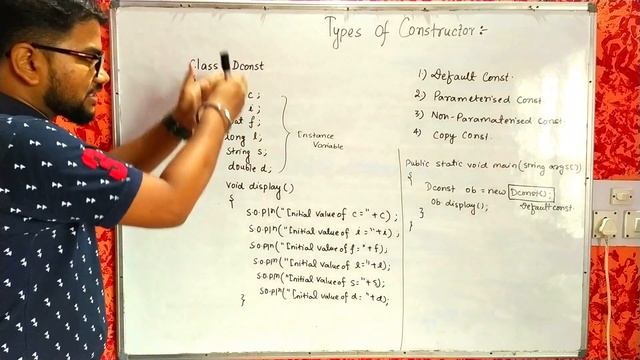 Types of Constructor:-
Class Dconst
c;
i;
f;
long l;
String s;
double d;
Instance
Variable
void display()
{
S.o.pln("Initial value of c="+c);
S.o.pln("Initial value of i="+i);
S.o.pln("Initial value of f="+f);
S.o.pln("Initial value of l="+l);
S.o.pln("Initial value of s="+s);
S.o.pln("Initial value of d="+d);
}
1) Default Const.
2) Parameterised Const
3) Non-Paramaterised Const
4) Copy Const.
Public static void main(string args[])
{
Dconst ob = new Dconst();
ob.display();
Default const.
}
}